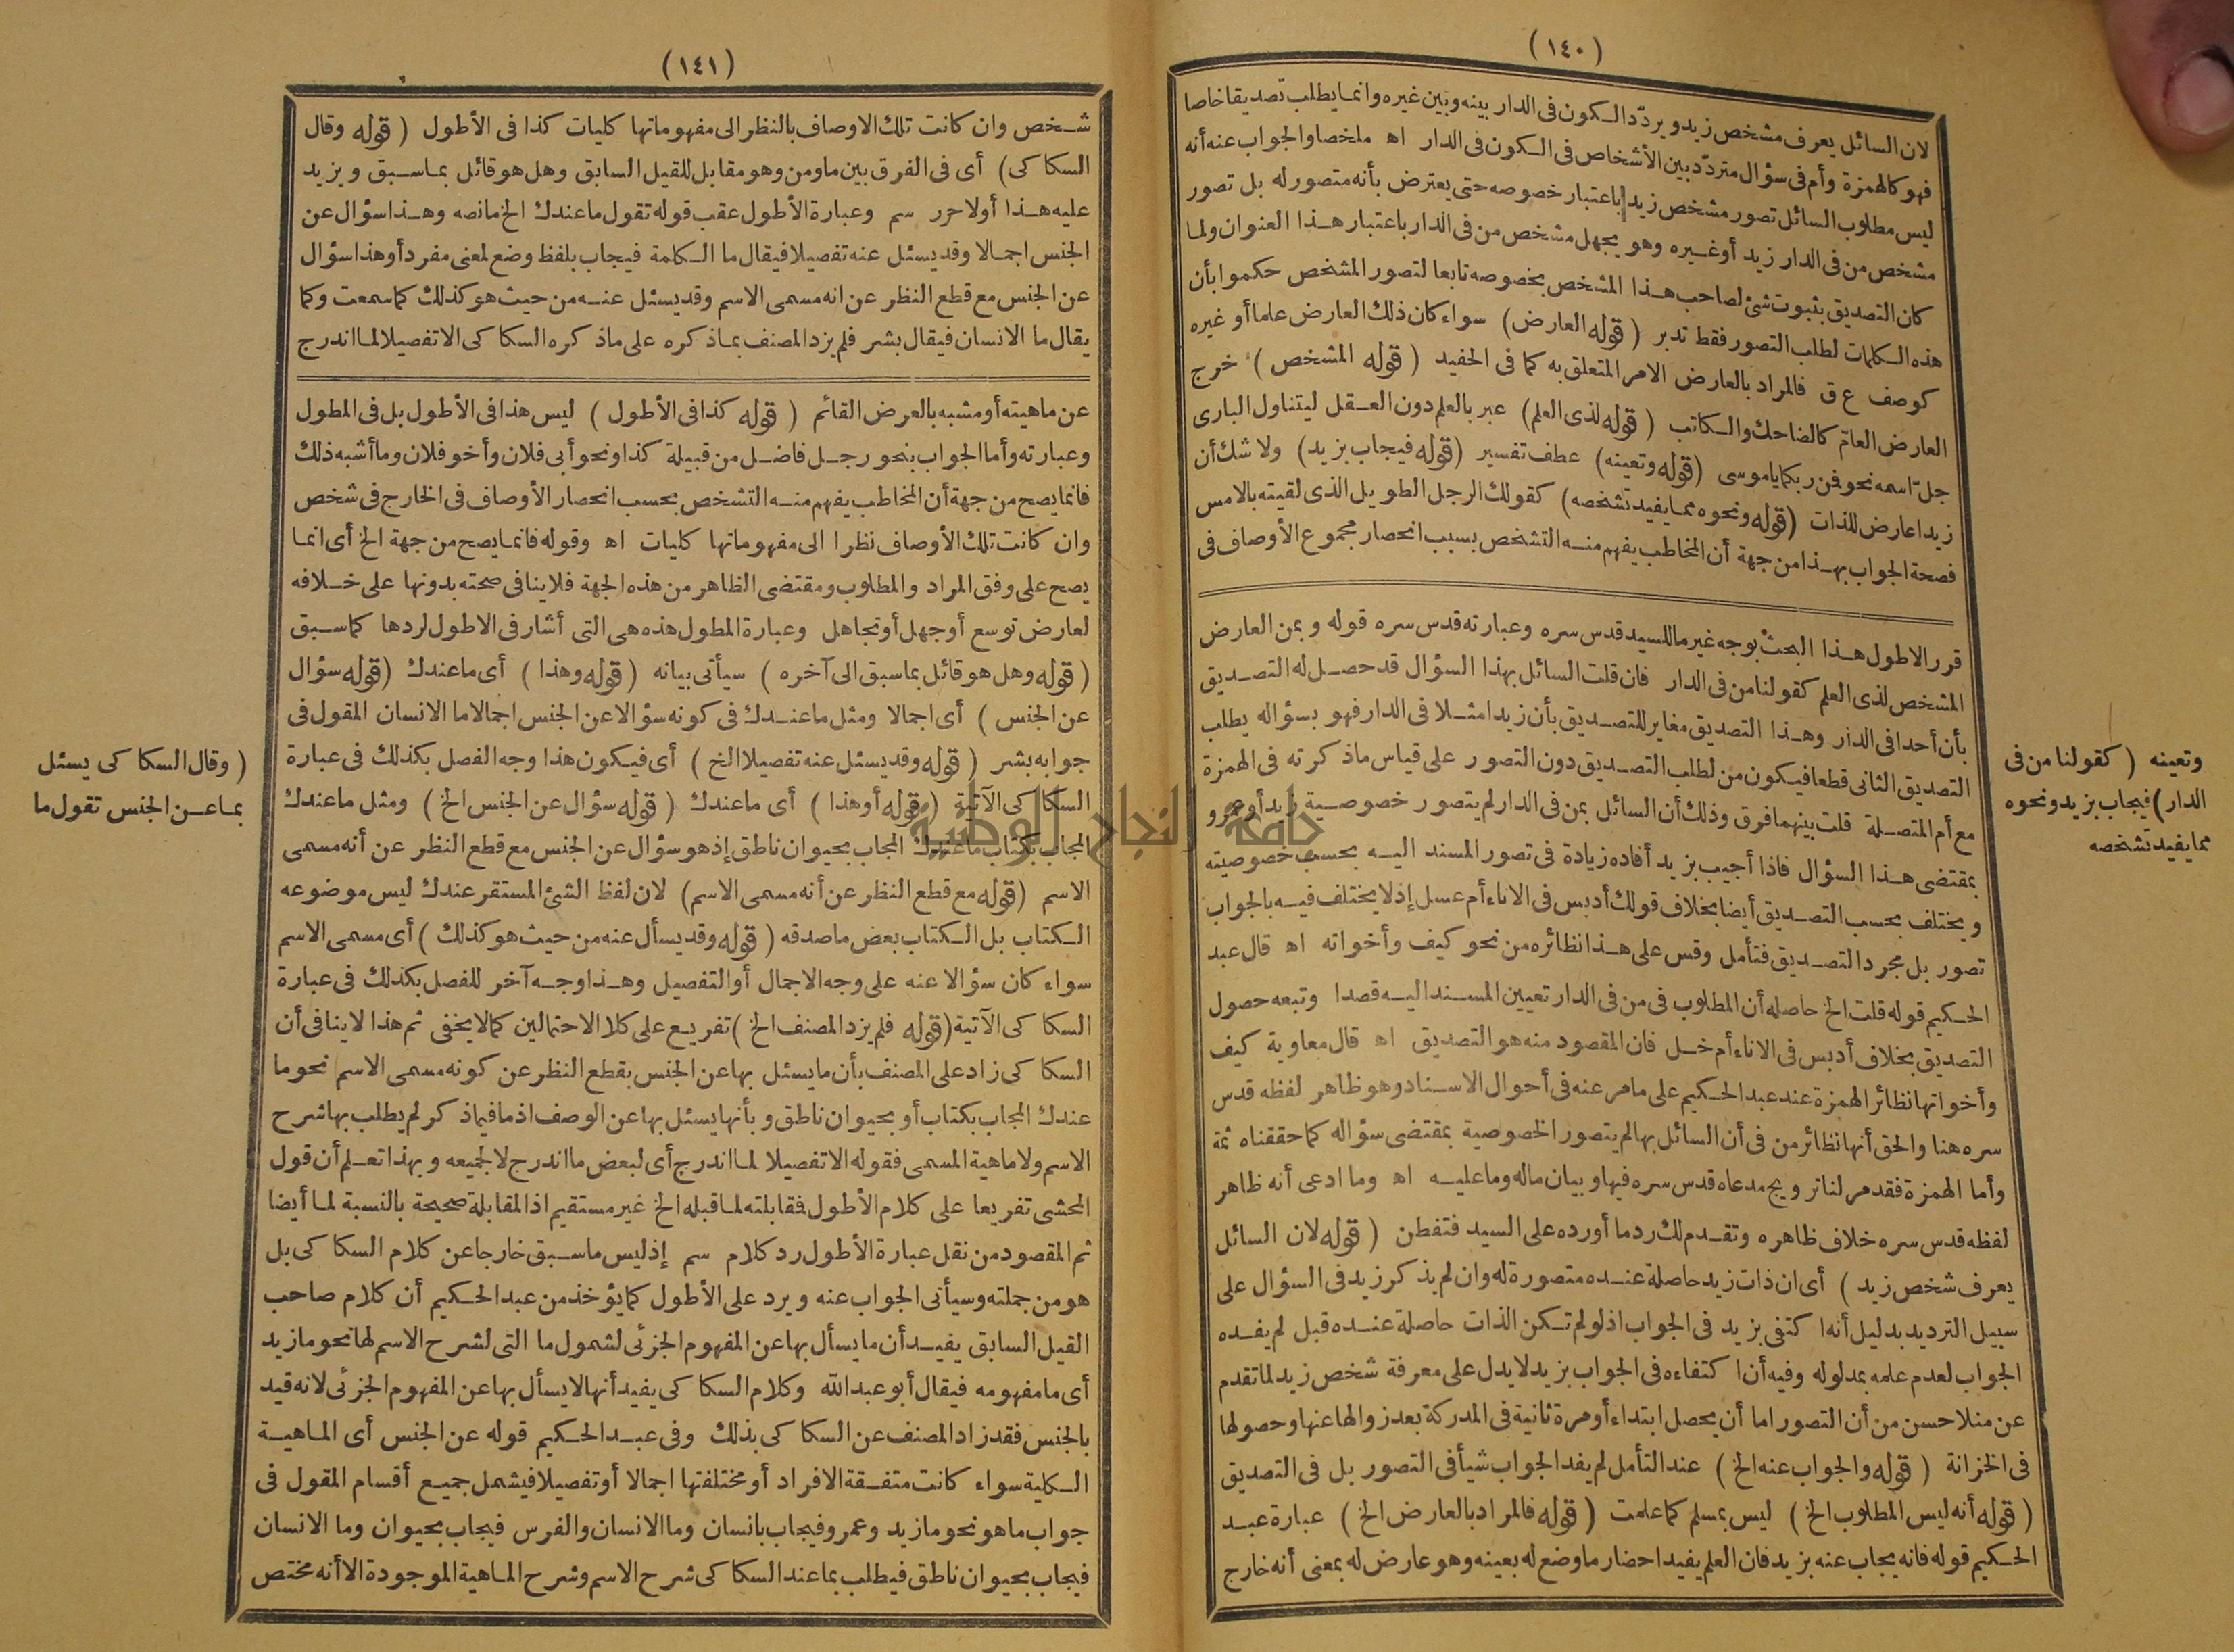 (١٤٠)
لان السائل يعرف مشخص زيد ويردّد الكون فى الدار بينه وبين غيره وانما يطلب تصديقا خاصا
فهو كالهمزة وأم فى سؤال متردّد بين الأشخاص فى الكون فى الدار اه ملخصا والجواب عنه أنه
ليس مطلوب السائل تصور مشخص زيد باعتبار خصوصه حتى يعترض بأنه متصور له بل تصور
مشخص من فى الدار زيد أو غيره وهو يجهل مشخص من فى الدار باعتبار هذا العنوان ولما
كان التصديق بثبوت شئ لصاحب هذا المشخص بخصوصه تابعا لتصور المشخص حكموا بأن
هذه الكلمات لطلب التصور فقط تدبر (قوله العارض) سواء كان ذلك العارض علما أو غيره
كوصف ع ق فالمراد بالعارض الامر المتعلق به كما فى الحفيد (قوله المشخص) خرج
العارض العامّ كالضاحك والكاتب (قوله لذى العلم) عبر بالعلم دون العقل ليتناول البارى
جلّ اسمه نحو فمن ربكما ياموسى (قوله وتعينه) عطف تفسير (قوله فيجاب بزيد) ولا شك أن
زيدا عارض للذات (قوله ونحوه مما يفيد تشخصه) كقولك الرجل الطويل الذى لقيته بالامس
فصحة الجواب بهذا من جهة أن المخاطب يفهم منه التشخص بسبب انحصار مجموع الأوصاف فى
قرر الاطول هذا البحث بوجه غير ما للسيد قدس سره وعبارته قدس سره قوله وبمن العارض
المشخص لذى العلم كقولنا من فى الدار فان قلت السائل بهذا السؤال قد حصل له التصديق
بأن أحدا فى الدار وهذا التصديق مغاير للتصديق بأن زيدا مثلا فى الدار فهو بسؤاله يطلب
التصديق الثانى قطعا فيكون من لطلب التصديق دون التصور على قياس ما ذكرته فى الهمزة
مع أم المتصلة قلت بينهما فرق وذلك أن السائل بمن فى الدار لم يتصور خصوصية زيد أو عمرو
بمقتضى هذا السؤال فاذا أجيب بزيد أفاده زيادة فى تصور المسند اليه بحسب خصوصيته
ويختلف بحسب التصديق أيضا بخلاف قولك أدبس فى الاناء أم عسل إذ لا يختلف فيه بالجواب
تصور بل مجرد التصديق فتأمل وقس على هذا نظائره من نحو كيف وأخواته اه قال عبد
الحكيم قوله قلت الخ حاصله أن المطلوب فى من فى الدار تعيين المسند اليه قصدا وتبعه حصول
التصديق بخلاف أدبس فى الاناء أم خل فان المقصود منه هو التصديق اه قال معاوية كيف
وأخواتها نظائر الهمزة عند عبد الحكيم على ما مر عنه فى أحوال الاسناد وهو ظاهر لفظه قدس
سره هنا والحق أنها نظائر من فى أن السائل بها لم يتصور الخصوصية بمقتضى سؤاله كما حققناه ثمة
وأما الهمزة فقد مر لنا ترويج مدعاه قدس سره فيها وبيان ماله وما عليه اه وما ادعى أنه ظاهر
لفظه قدس سره خلاف ظاهره وتقدم لك رد ما أورده على السيد فتفطن (قوله لان السائل
يعرف شخص زيد) أى ان ذات زيد حاصلة عنده متصورة له وان لم يذكر زيد فى السؤال على
سبيل الترديد بدليل أنه اكتفى بزيد فى الجواب اذ لو لم تكن الذات حاصلة عنده قبل لم يفده
الجواب لعدم علمه بمدلوله وفيه أن اكتفاءه فى الجواب بزيد لا يدل على معرفة شخص زيد لما تقدم
عن منلا حسن من أن التصور اما أن يحصل ابتداء أو مرة ثانية فى المدركة بعد زوالها عنها وحصولها
فى الخزانة (قوله والجواب عنه الخ) عند التأمل لم يفد الجواب شيأ فى التصور بل فى التصديق
(قوله أنه ليس المطلوب الخ) ليس بمسلم كما علمت (قوله فالمراد بالعارض الخ) عبارة عبد
الحكيم قوله فانه يجاب عنه بزيد فان العلم يفيد احضار ما وضع له بعينه وهو عارض له بمعنى أنه خارج
وتعينه (كقولنا من فى
الدار) فيجاب بزيد ونحوه
مما يفيد تشخصه
(١٤١)
شخص وان كانت تلك الاوصاف بالنظر الى مفهوماتها كليات كذا فى الأطول (قوله وقال
السكاكى) أى فى الفرق بين ما ومن وهو مقابل للقيل السابق وهل هو قائل بما سبق ويزيد
عليه هذا أو لا حرر سم وعبارة الأطول عقب قوله تقول ما عندك الخ ما نصه وهذا سؤال عن
الجنس اجمالا وقد يسئل عنه تفصيلا فيقال ما الكلمة فيجاب بلفظ وضع لمعنى مفرد أو هذا سؤال
عن الجنس مع قطع النظر عن انه مسمى الاسم وقد يسئل عنه من حيث هو كذلك كما سمعت وكما
يقال ما الانسان فيقال بشر فلم يزد المصنف بما ذكره على ما ذكره السكاكى الا تفصيلا لما اندرج
عن ماهيته أو مشبه بالعرض القائم (قوله كذا فى الأطول) ليس هذا فى الأطول بل فى المطول
وعبارته وأما الجواب بنحو رجل فاضل من قبيلة كذا ونحو أبى فلان وأخو فلان وما أشبه ذلك
فانما يصح من جهة أن المخاطب يفهم منه التشخص بحسب انحصار الأوصاف فى الخارج فى شخص
وان كانت تلك الأوصاف نظرا الى مفهوماتها كليات اه وقوله فانما يصح من جهة الخ أى انما
يصح على وفق المراد والمطلوب ومقتضى الظاهر من هذه الجهة فلا ينافى صحته بدونها على خلافه
لعارض توسع أو جهل أو تجاهل وعبارة المطول هذه هى التى أشار فى الاطول لردها كما سبق
(قوله وهل هو قائل بما سبق الى آخره) سيأتى بيانه (قوله وهذا) أى ما عندك (قوله سؤال
عن الجنس) أى اجمالا ومثل ما عندك فى كونه سؤالا عن الجنس اجمالا ما الانسان المقول فى
جوابه بشر (قوله وقد يسئل عنه تفصيلا الخ) أى فيكون هذا وجه الفصل بكذلك فى عبارة
السكاكى الآتية (قوله أو هذا) أى ما عندك (قوله سؤال عن الجنس الخ) ومثل ما عندك
المجاب بكتاب ما عندك المجاب بحيوان ناطق إذ هو سؤال عن الجنس مع قطع النظر عن أنه مسمى
الاسم (قوله مع قطع النظر عن أنه مسمى الاسم) لان لفظ الشئ المستقر عندك ليس موضوعه
الكتاب بل الكتاب بعض ما صدقه (قوله وقد يسأل عنه من حيث هو كذلك) أى مسمى الاسم
سواء كان سؤالا عنه على وجه الاجمال أو التفصيل وهذا وجه آخر للفصل بكذلك فى عبارة
السكاكى الآتية (قوله فلم يزد المصنف الخ) تفريع على كلا الاحتمالين كما لا يخفى ثم هذا لا ينافى أن
السكاكى زاد على المصنف بأن ما يسئل بها عن الجنس بقطع النظر عن كونه مسمى الاسم نحو ما
عندك المجاب بكتاب أو بحيوان ناطق وبأنها يسئل بها عن الوصف اذ ما فيما ذكر لم يطلب بها شرح
الاسم ولا ماهية المسمى فقوله الا تفصيلا لما اندرج أى لبعض ما اندرج لا لجميعه وبهذا تعلم أن قول
المحشى تفريعا على كلام الأطول فقابلته لما قبله الخ غير مستقيم اذ المقابلة صحيحة بالنسبة لما أيضا
ثم المقصود من نقل عبارة الأطول رد كلام سم إذ ليس ما سبق خارجا عن كلام السكاكى بل
هو من جملته وسيأتى الجواب عنه ويرد على الأطول كما يؤخذ من عبد الحكيم أن كلام صاحب
القيل السابق يفيد أن ما يسأل بها عن المفهوم الجزئى لشمول ما التى لشرح الاسم لها نحو ما زيد
أى ما مفهومه فيقال أبو عبد الله وكلام السكاكى يفيد أنها لا يسأل بها عن المفهوم الجزئى لانه قيد
بالجنس فقد زاد المصنف عن السكاكى بذلك وفى عبد الحكيم قوله عن الجنس أى الماهية
الكلية سواء كانت متفقة الافراد أو مختلفتها اجمالا أو تفصيلا فيشمل جميع أقسام المقول فى
جواب ما هو نحو ما زيد وعمرو فيجاب بانسان وما الانسان والفرس فيجاب بحيوان وما الانسان
فيجاب بحيوان ناطق فيطلب بما عند السكاكى شرح الاسم وشرح الماهية الموجودة الا أنه مختص
(وقال السكاكى يسئل
بما عن الجنس تقول ما
جامعة النجاح الوطنية